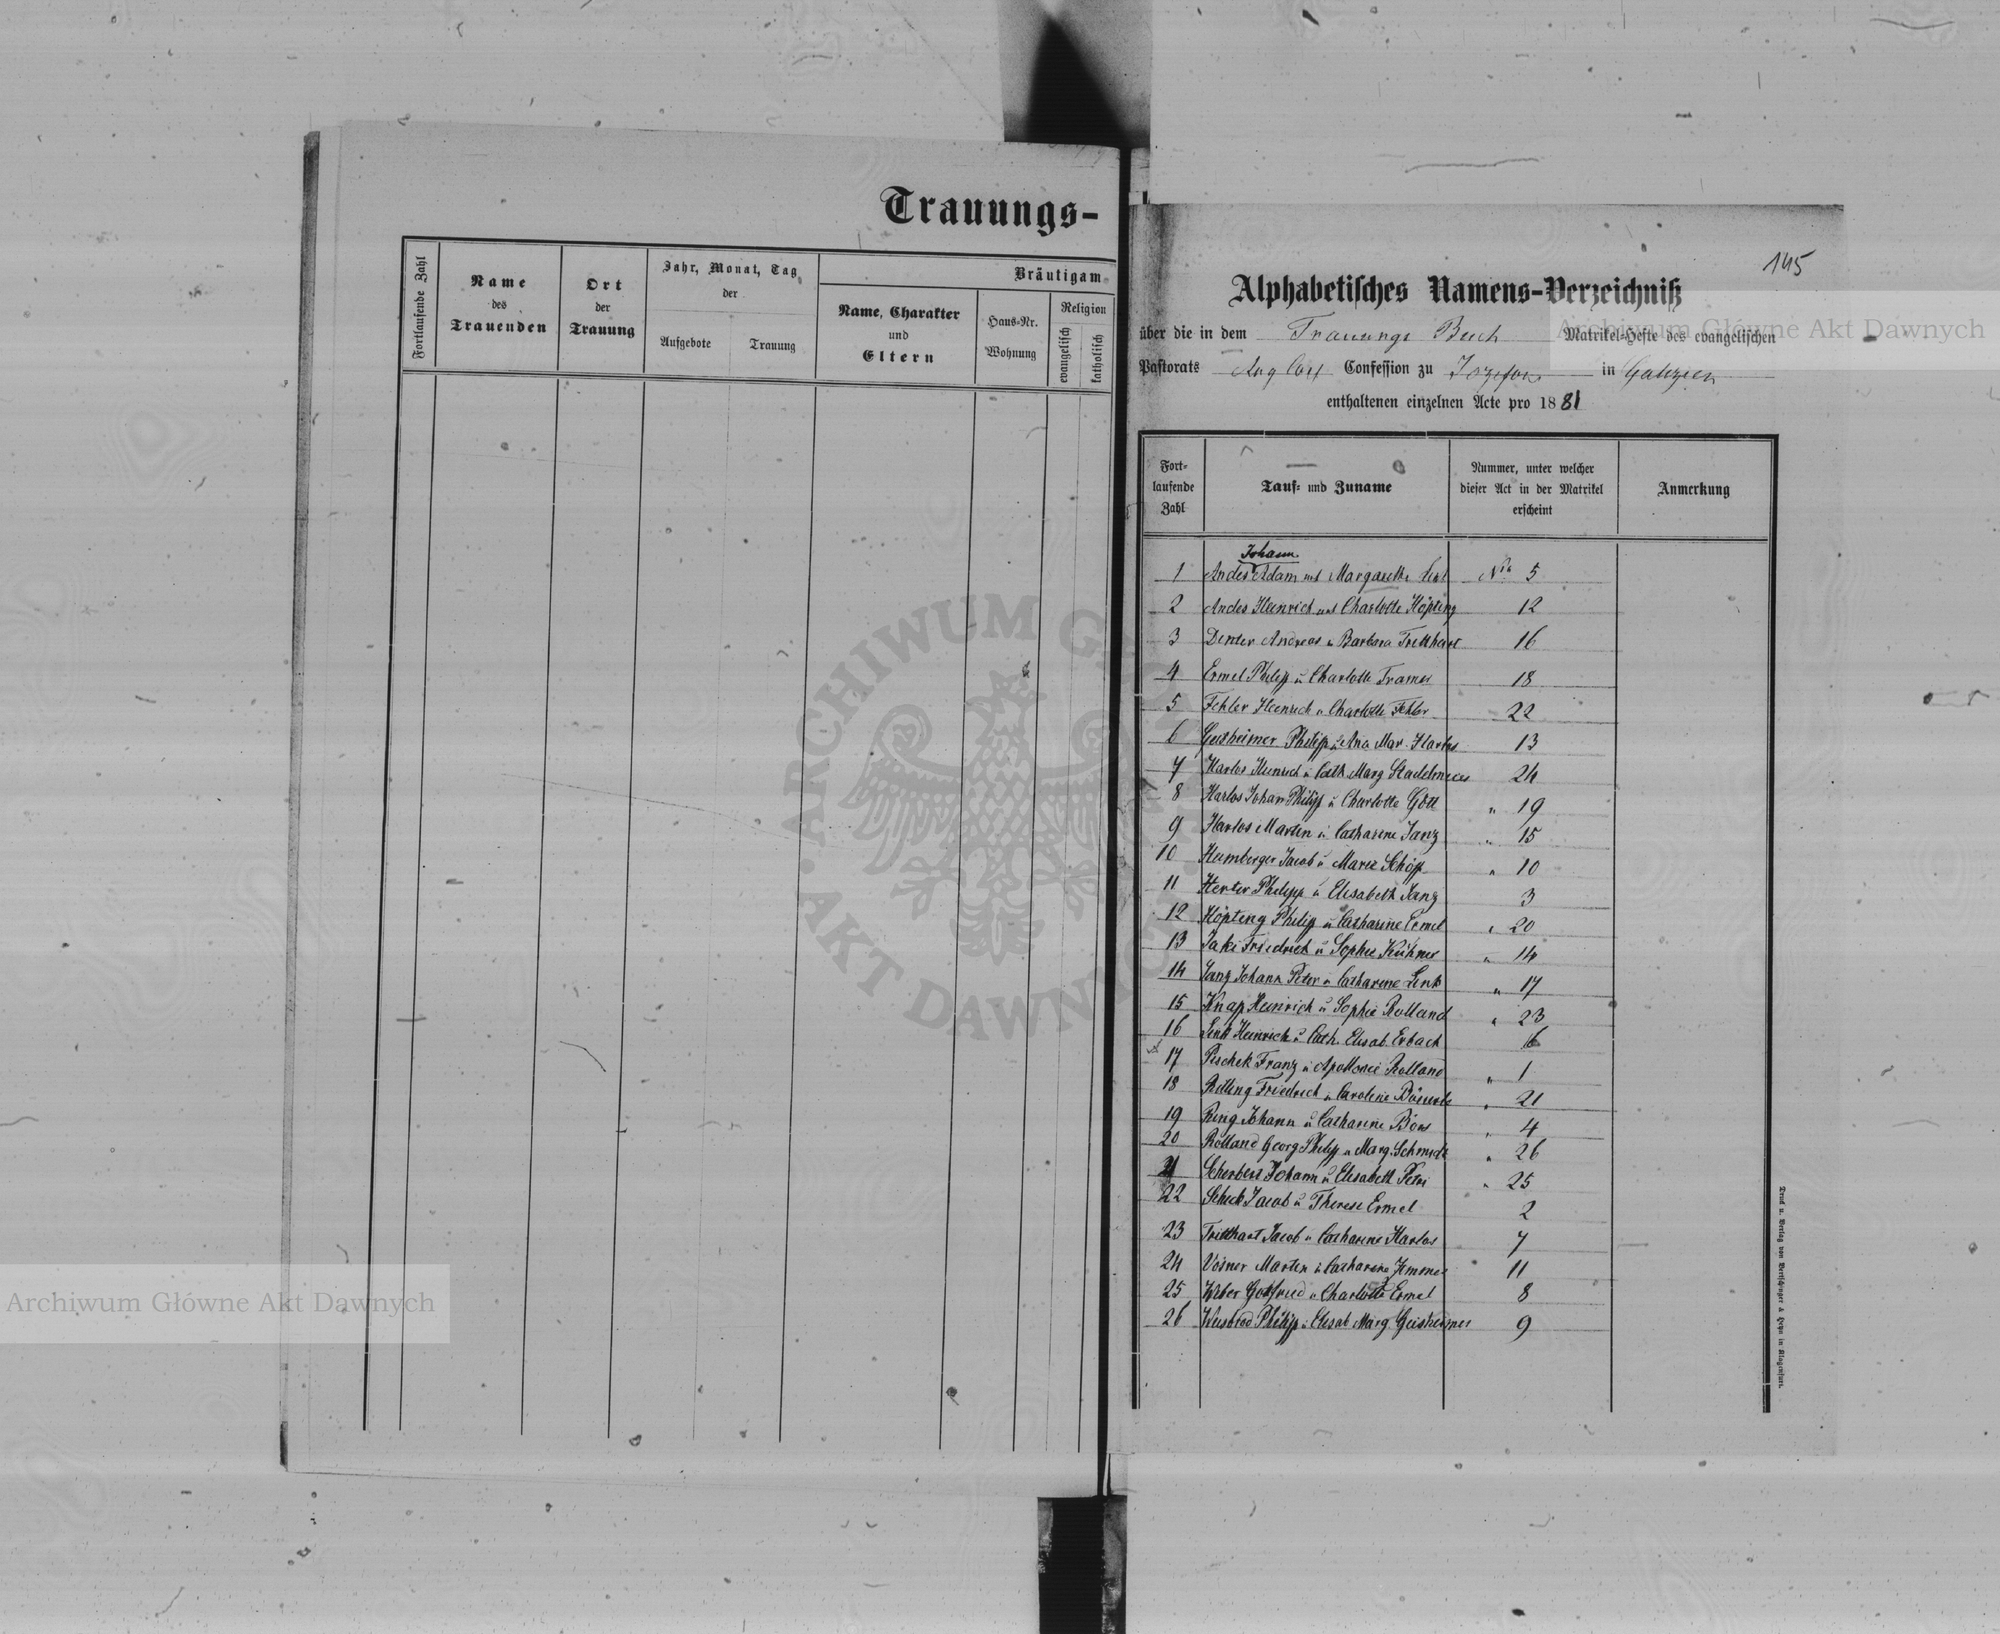 Trauungs-
Fortlaufende Zahl
Name
des
Trauenden
Ort
der
Trauung
Jahr, Monat, Tag
der
Aufgebote
Trauung
Bräutigam
Name, Charakter
und
Eltern
Haus-Nr.
Wohnung
Religion
evangelisch
katholisch
145
Alphabetisches Namens-Verzeichniß
über die in dem Trauungs Buch Matrikel-Hefte des evangelischen
Pastorats Aug Conf Confession zu Jozefow in Galizien
enthaltenen einzelnen Acte pro 1881
Fort-
laufende
Zahl
Tauf- und Zuname
Nummer, unter welcher
dieser Act in der Matrikel
erscheint
Anmerkung
Johann
1 Andes Adam und Margarethe Nro 5
2 Andes Heinrich und Charlotte Höpting 12
3 Denter Andreas u Barbara Tritthart 16
4 Ermel Philipp u Charlotte Tramer 18
5 Fehler Heinrich u Charlotte Fehler 22
6 Geisheimer Philipp u Ana Mar. Harlos 13
7 Harlos Heinrich u Cath Marg Stadelmeier 24
8 Harlos Johan Philipp u Charlotte Gött " 19
9 Harlos Martin u Catharine Janz " 15
10 Humberger Jacob u Marie Schöpp " 10
11 Herter Philipp u Elisabeth Janz 3
12 Höpting Philipp u Catharine Ermel " 20
13 Jaki Friedrich u Sophie Kühner " 14
14 Janz Johann Peter u Catharine Link " 17
15 Knap Heinrich u Sophie Rolland " 23
16 Link Heinrich u Cath. Elisab. Erbach 6
17 Pischek Franz u Apollonie Rolland " 1
18 Retling Friedrich u Caroline " 21
19 Ring Johann u Catharine Bors " 4
20 Rolland Georg Philipp u Marg. Schmidt " 26
21 Scherbert Johann u Elisabeth Petri " 25
22 Schick Jacob u Therese Ermel 2
23 Tritthart Jacob u Catharine Harlos 7
24 Vosner Martin u Catharine Zimmer 11
25 Weber Gottfried u Charlotte Ermel 8
26 Weisbrod Philipp u Elisab Marg. Geisheimer 9
Druck u. Verlag von Bertschinger & Heyn in Klagenfurt.
Archiwum Główne Akt Dawnych
Archiwum Główne Akt Dawnych
ARCHIWUM G
AKT DAWN